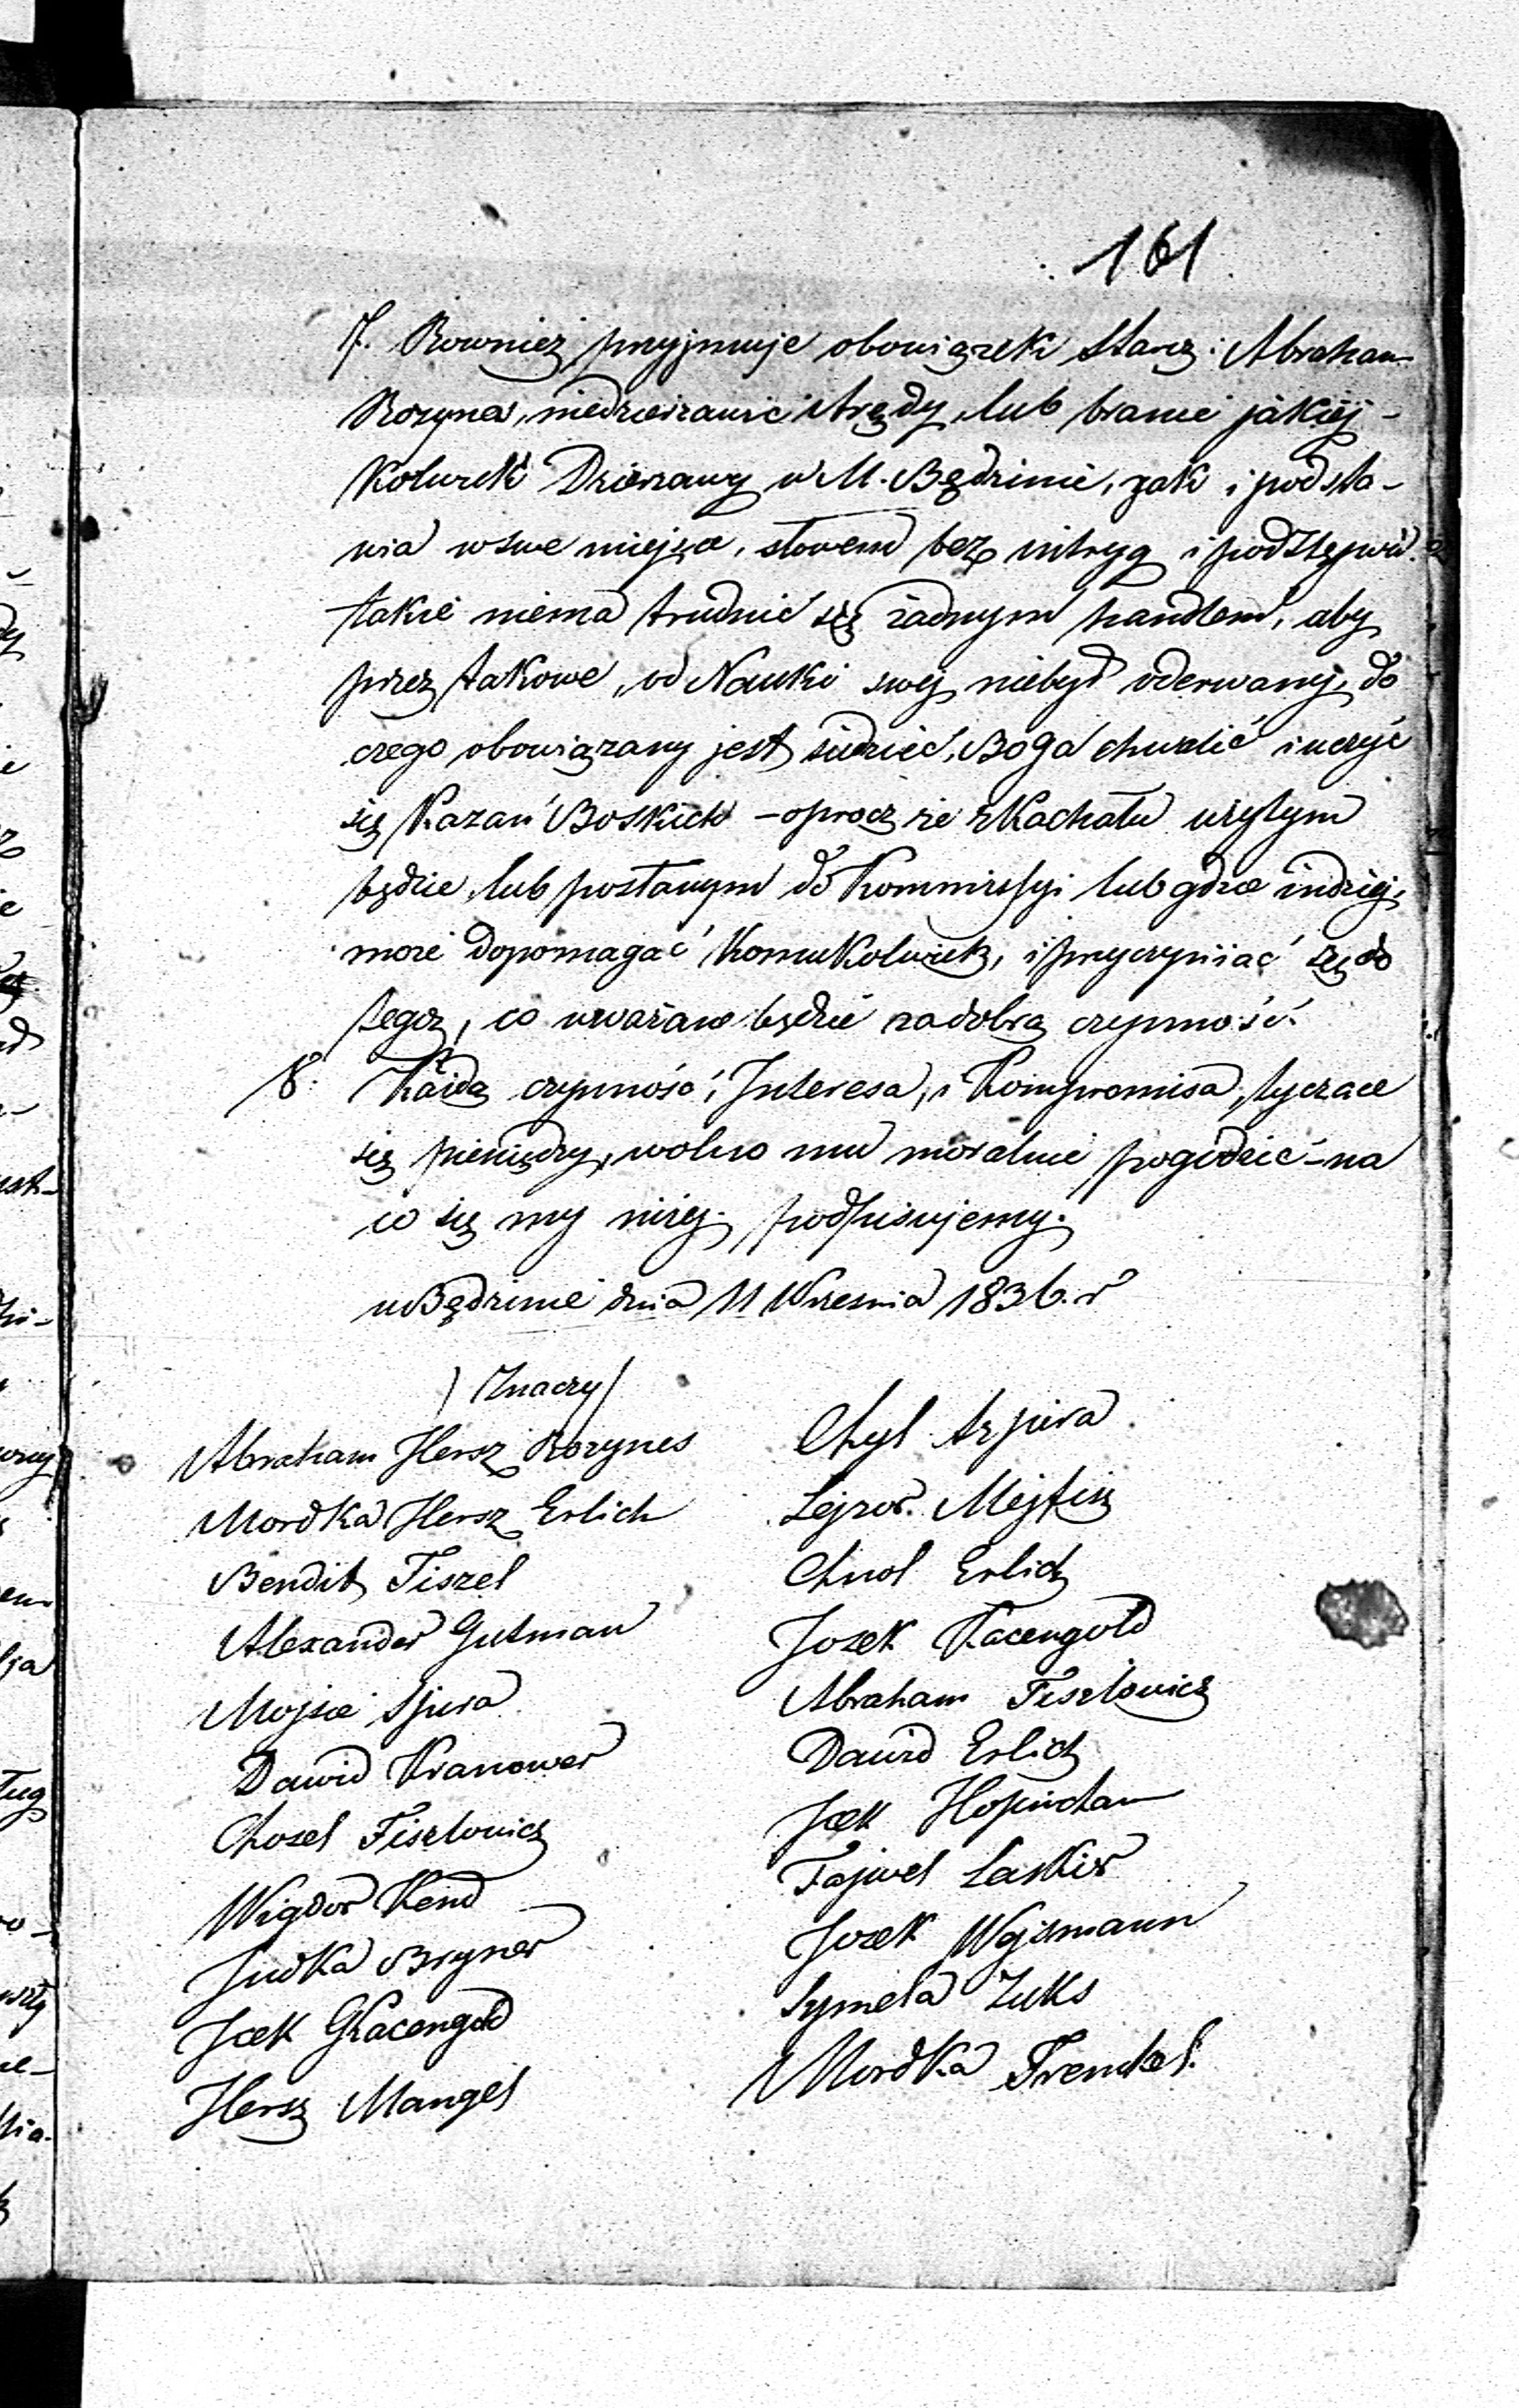 161
7. Rownież przyjmuje obowiązek Starz: Abraham
Rozynes, niedzierzawić Arędy, lub branie jakiej-
kolwiek Dzierzawy w M. Będzinie, jak i podsta-
wia w swe miejsce, słowem bez intryg i podstępów.
takie niema trudnić się żadnym handlem, aby
przez takowe, od Nauki swej niebył oderwany, do
czego obowiązany jest siedzieć, Boga chwalić i uczyć
się Kazań Boskich - oprocz że z Kachału użytym
będzie, lub posłanym do Kommissyi lub gdzie indziej,
może dopomagać komukolwiek, i przyczyniać się do
tego, co uważane będzie za dobrą czynność.
8. Każda czynność, Interesa, i Kompromisa, tyczące
się pieniędzy, wolno mu moralnie pogodzić - na
co się my niżej podpisujemy.
w Będzinie dnia 11 Wrzesnia 1836. r
/ Znaczy /
Abraham Hersz Rozynes
Mordka Hersz Erlich
Bendit Fiszel
Alexander Gutman
Mojsie Spira
Dawid Kranower
Chosel Fiszlowicz
Wigdor Kend
Judka Bryner
Jcek Kacengold
Hersz Mangel
Chyl Szpira
Lejzor Mejtlis
Chuol Erlich
Josek Kacengold
Abraham Fiszlowicz
Dawid Erlich
Jcek
Fajwel Laskier
Josek Wajsmann
Symcha Zuks
Mordka Frenkel.